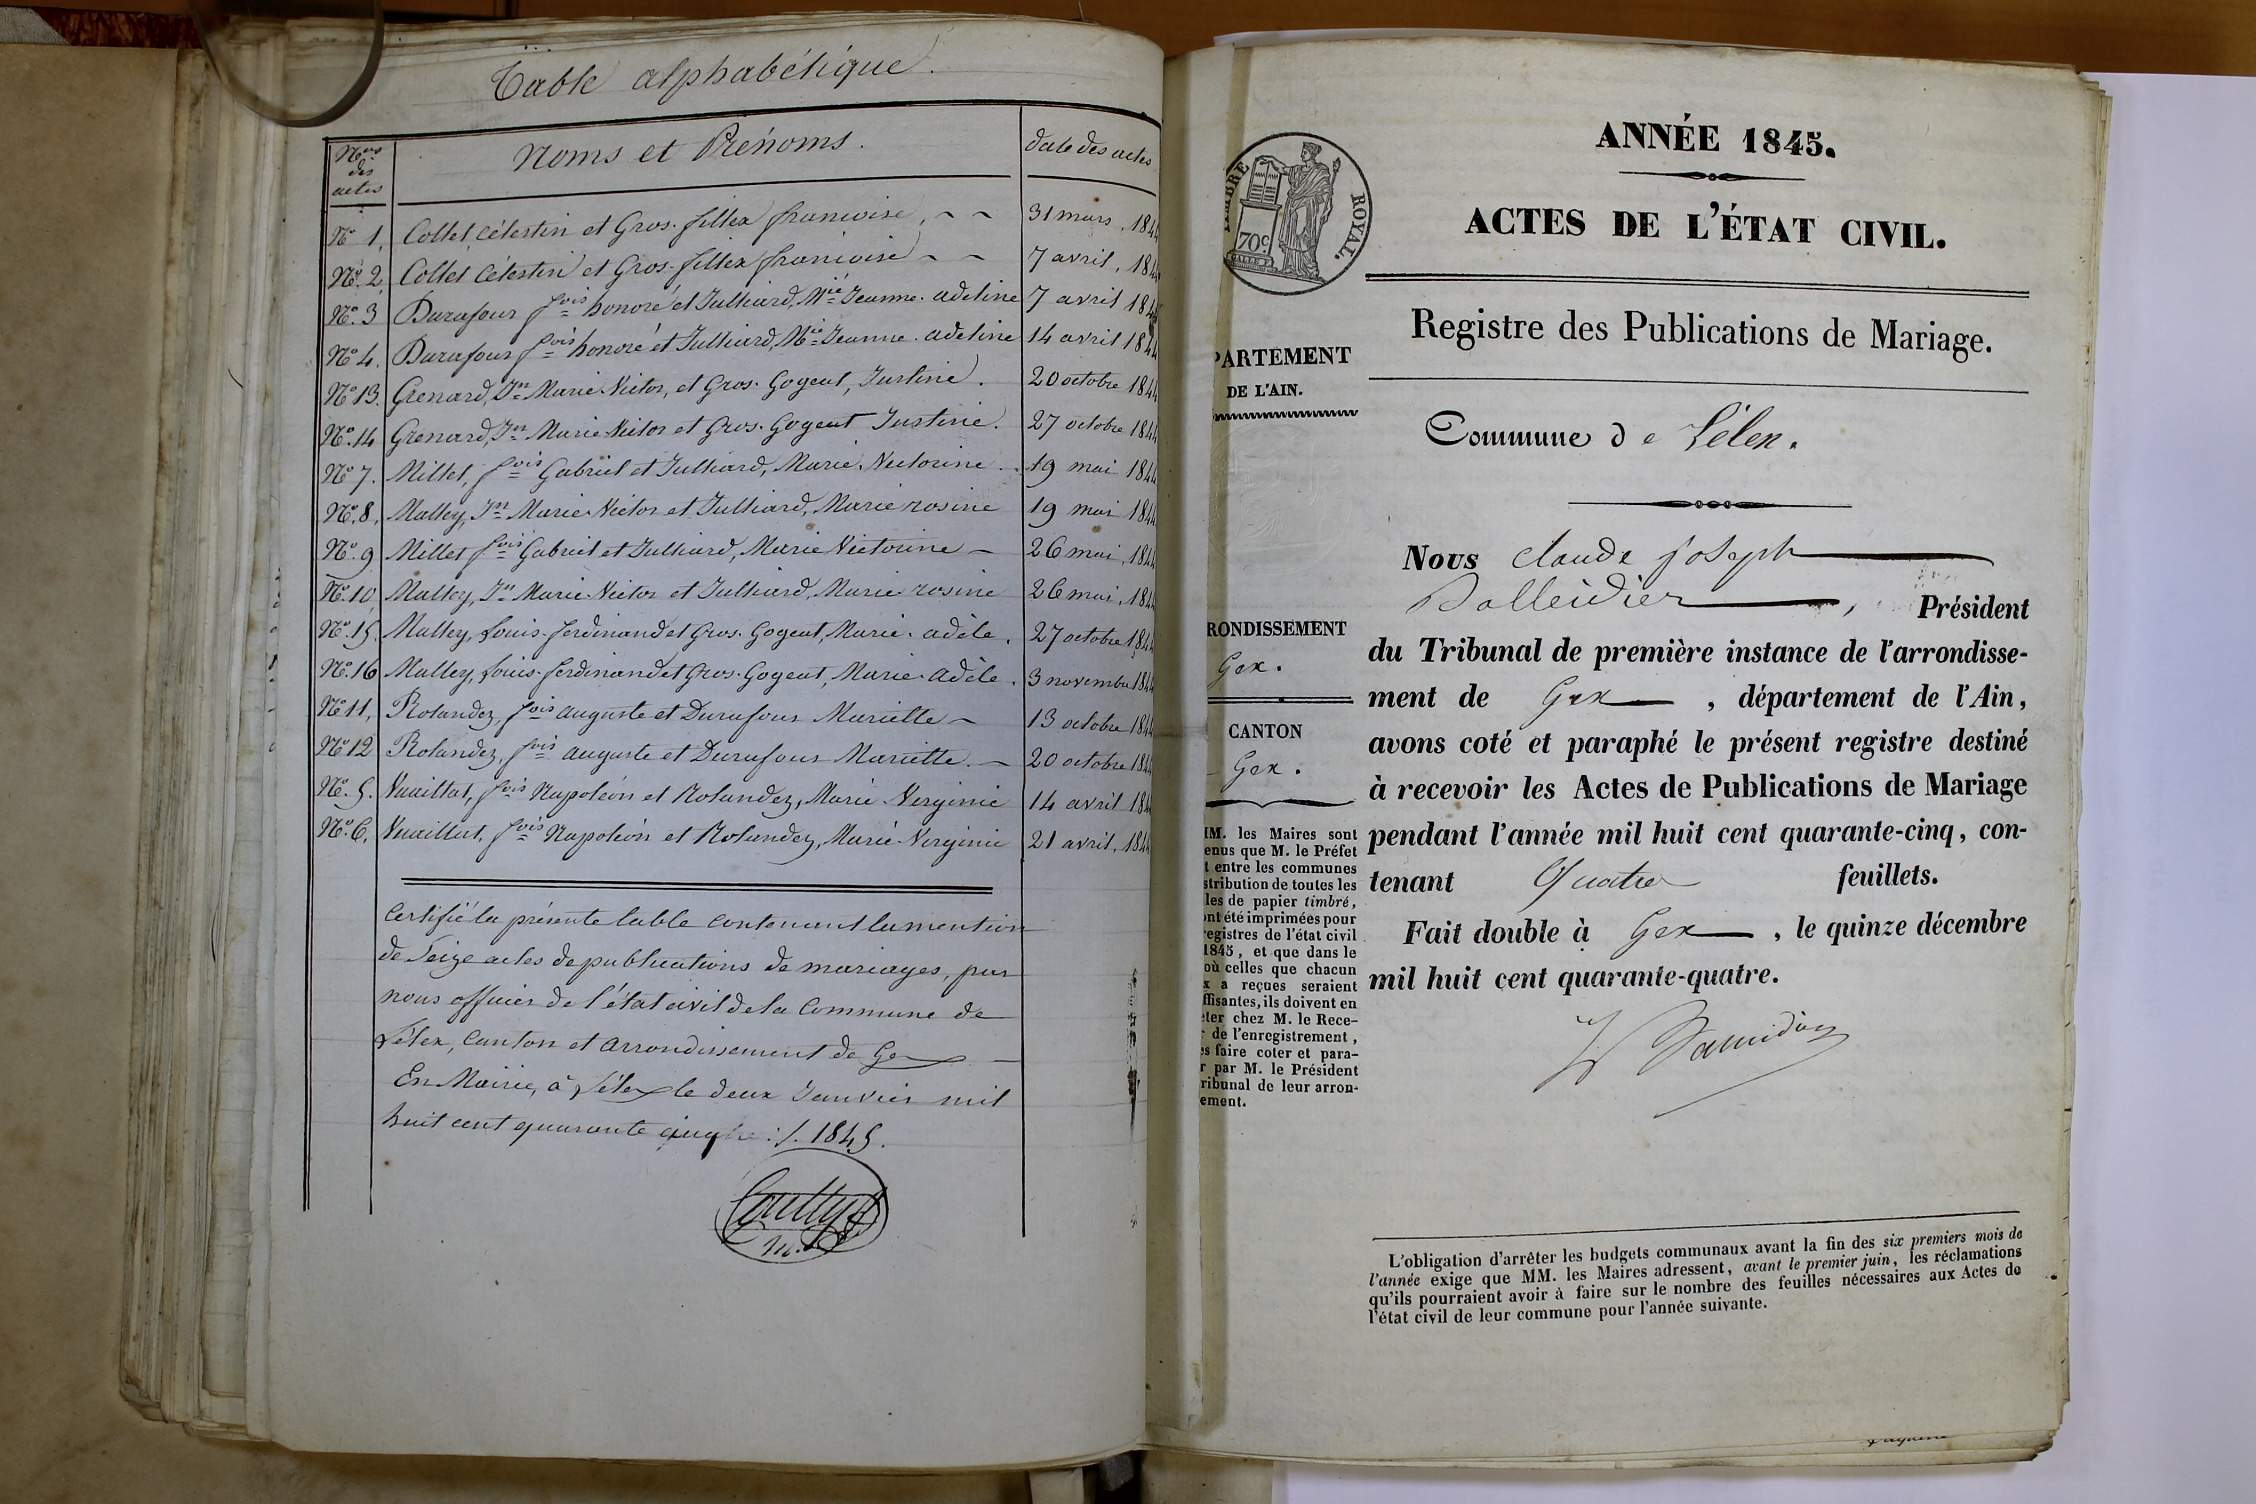 Table alphabétique.
Nos des actes
Noms et Prénoms.
date des actes
No 1. Collet, Célestin et Gros-fillex françoise, 31 mars, 1844
No 2. Collet Célestin et Gros-fillex françoise 7 avril, 1844
No 3 Durafour fois honoré et Julliard, Mie Jeanne-adeline 7 avril 1844
No 4. Durafour fois honoré et Julliard, Mie Jeanne-adeline 14 avril 1844
No 13. Grenard, Jn Marie-Victor, et Gros-Gogeat, Justine. 20 octobre 1844
No 14 Grenard, Jn Marie-Victor et Gros-Gogeat Justine. 27 octobre 1844
No 7. Millet, fois Gabriel et Julliard, Marie-Victorine 19 mai 1844
No 8. Malley, Jn Marie-Victor et Julliard, Marie rosine 19 mai 1844
No 9 Millet fois Gabriel et Julliard, Marie Victorine 26 mai, 1844
No 10 Malley, Jn Marie-Victor et Julliard, Marie rosine 26 mai, 1844
No 15. Malley, Louis-ferdinand et Gros-Gogeat, Marie-adèle. 27 octobre 1844
No 16 Malley, Louis-ferdinand et Gros-Gogeat, Marie-adèle. 3 novembre 1844
No 11, Rolandez, fois auguste et Durafour Mariette 13 octobre 1844
No 12 Rolandez, fois auguste et Durafour Mariette. 20 octobre 1844
No 5. Vuaillat, fois Napoléon et Rolandez, Marie-Verginie 14 avril 1844
No 6, Vuaillat, fois Napoléon et Rolandez, Marie-Verginie 21 avril, 1844
Certifié la présente table contenant la mention
de Seize actes de publications de mariages, par
nous officier de l'état civil de la Commune de
Lélex, Canton et arrondissement de Gex
En Mairie, à Lélex le deux Janvier mil
huit cent quarante cinq :/. 1845.
TIMBRE ROYAL.
70c.
PARTEMENT
DE L'AIN.
RONDISSEMENT
Gex.
CANTON
Gex.
MM. les Maires sont
enus que M. le Préfet
t entre les communes
stribution de toutes les
les de papier timbré,
ont été imprimées pour
registres de l'état civil
1845, et que dans le
où celles que chacun
x a reçues seraient
ffisantes, ils doivent en
eter chez M. le Rece-
r de l'enregistrement,
es faire coter et para-
r par M. le Président
ribunal de leur arron-
ement.
ANNÉE 1845.
ACTES DE L'ÉTAT CIVIL.
Registre des Publications de Mariage.
Commune de Lélex.
Nous claude joseph
Balleidier, Président
du Tribunal de première instance de l'arrondisse-
ment de Gex, département de l'Ain,
avons coté et paraphé le présent registre destiné
à recevoir les Actes de Publications de Mariage
pendant l'année mil huit cent quarante-cinq, con-
tenant Quatre feuillets.
Fait double à Gex, le quinze décembre
mil huit cent quarante-quatre.
L'obligation d'arrêter les budgets communaux avant la fin des six premiers mois de
l'année exige que MM. les Maires adressent, avant le premier juin, les réclamations
qu'ils pourraient avoir à faire sur le nombre des feuilles nécessaires aux Actes de
l'état civil de leur commune pour l'année suivante.